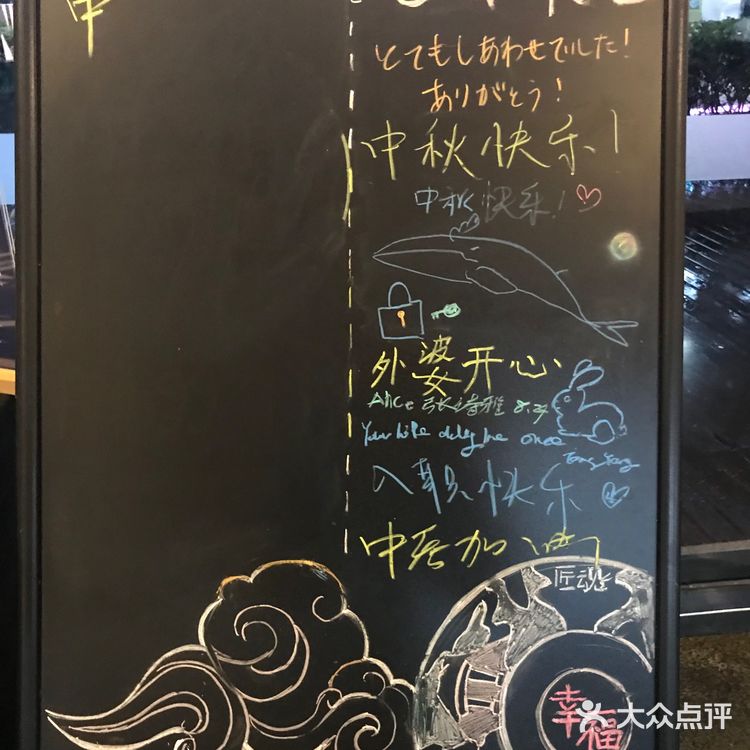 申
とてもしあわせでした!
ありがとう!
中秋快乐!
中秋快乐!
外婆开心
Alice 张 雅 8.24
Your life once
Tong Yang
入职快乐
中医加油
匠魂
幸福
大众点评